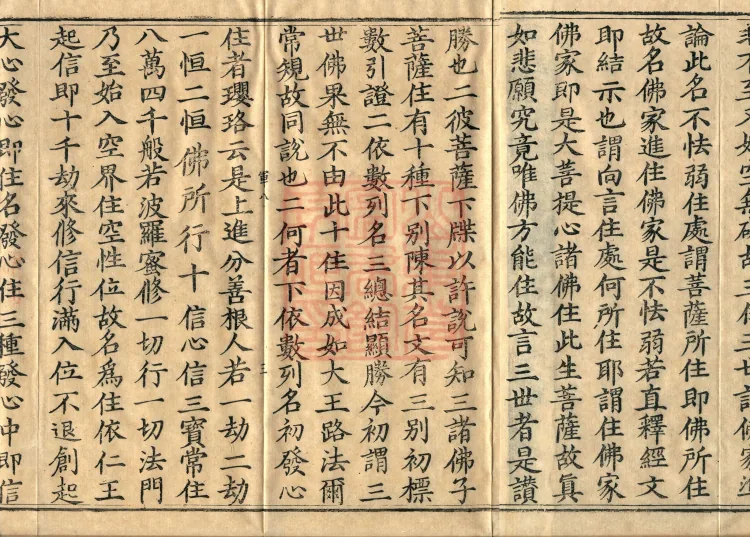 論此名不怯弱住處謂菩薩所住即佛所住
故名佛家進住佛家是不怯弱若直釋經文
即結示也謂向言住處何所住耶謂住佛家
佛家即是大菩提心諸佛住此生菩薩故真
如悲願究竟唯佛方能住故言三世者是讚
勝也二彼菩薩下牒以許說可知三諸佛子
菩薩住有十種下別陳其名文有三別初標
數引證二依數列名三總結顯勝今初謂三
世佛果無不由此十住因成如大王路法爾
常規故同說也二何者下依數列名初發心
軍八 三
住者瓔珞云是上進分善根人若一劫二劫
一恒二恒佛所行十信心信三寶常住
八萬四千般若波羅蜜修一切行一切法門
乃至始入空界住空性位故名爲住依仁王
起信即十千劫來修信行滿入位不退創起
大心發心即住名發心住三種發心中即信